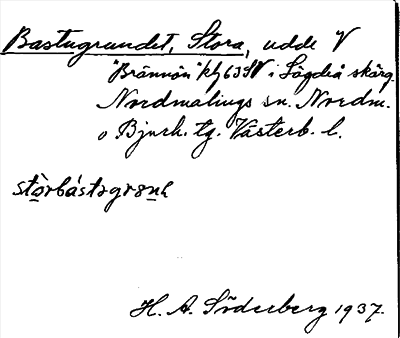 Bastugrundet, Stora, udde V
"Brännön" kbl 63 SV i Lögdeå skärg.
Nordmalings sn. Nordm.
o Bjurh. tg. Västerb. l.
stòrbástəgrən
H. A. Söderberg 1937.